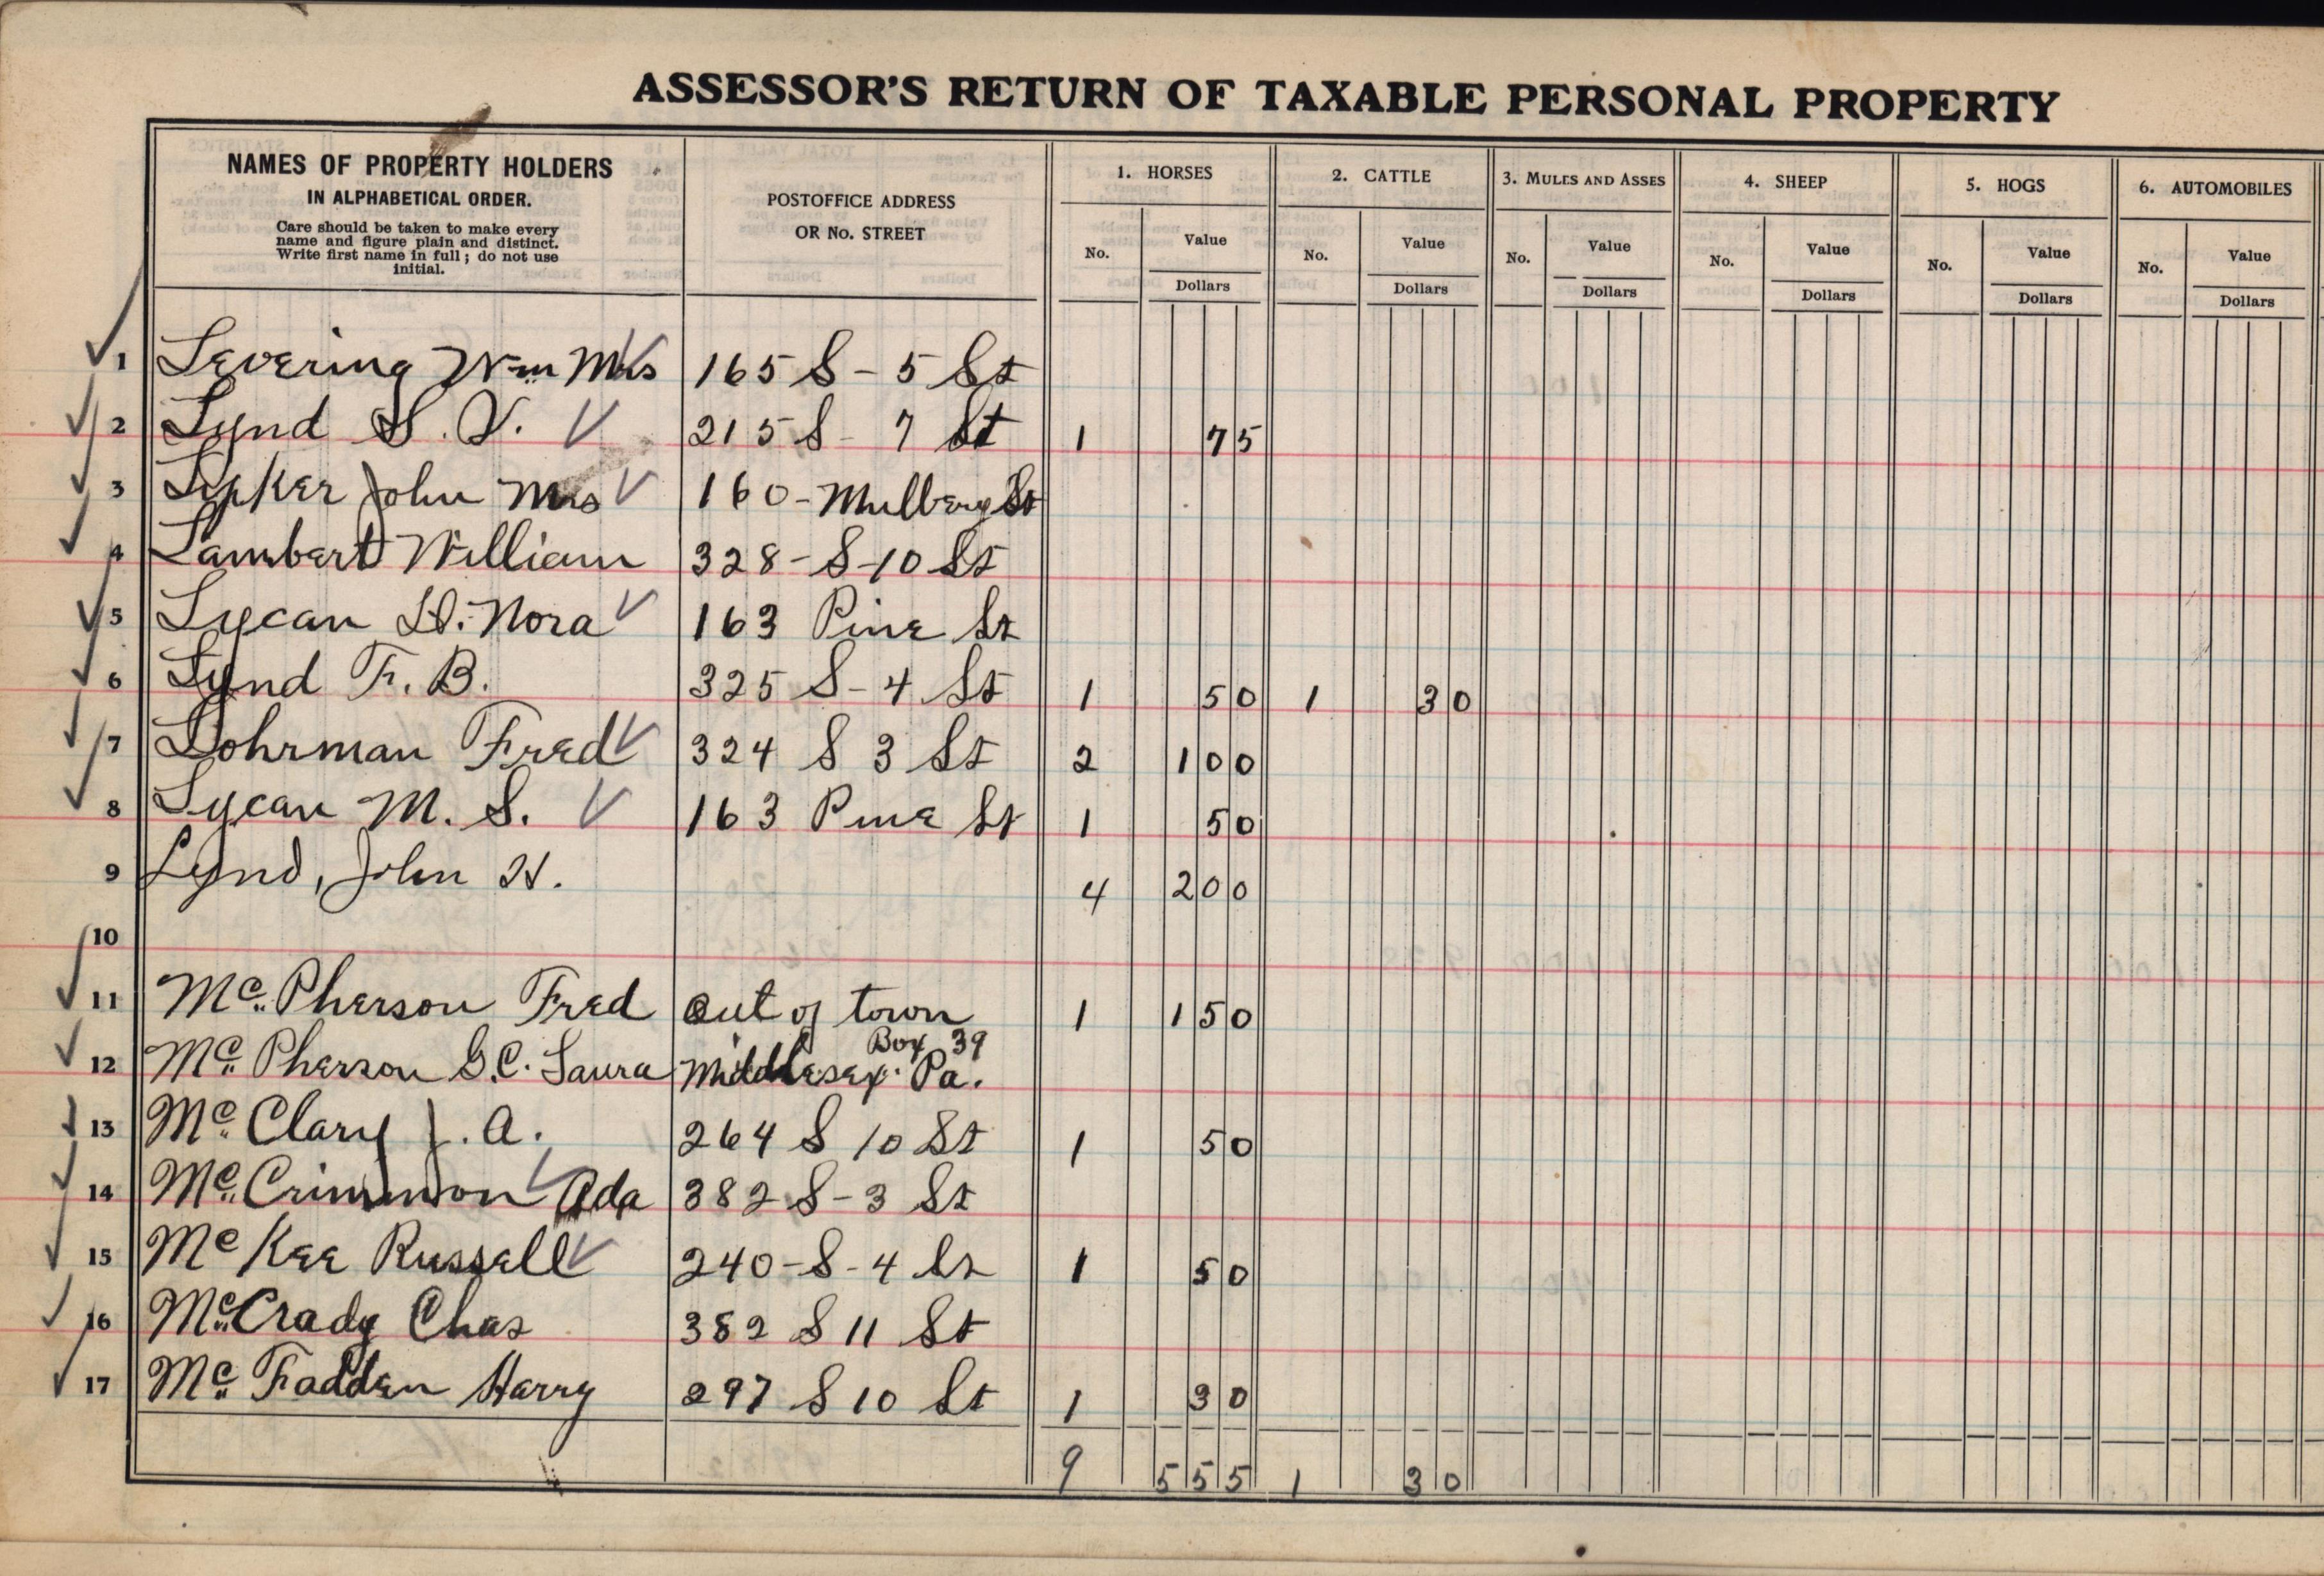 ASSESSOR'S RETURN OF TAXABLE PERSONAL PROPERTY
NAMES OF PROPERTY HOLDERS
IN ALPHABETICAL ORDER.
Care should be taken to make every
name and figure plain and distinct.
Write first name in full; do not use
initial.
POSTOFFICE ADDRESS
OR No. STREET
1. HORSES
No. Value
Dollars
2. CATTLE
No. Value
Dollars
3. MULES AND ASSES
No. Value
Dollars
4. SHEEP
No. Value
Dollars
5. HOGS
No. Value
Dollars
6. AUTOMOBILES
No. Value
Dollars
1 Levering Wm Mrs 165 S - 5 St
2 Lynd S. V. 215 S - 7 St 1 75
3 Lipker John Mrs 160 - Mulberry St
4 Lambert William 328 - S - 10 St
5 Lycan D. Nora 163 Pine St
6 Lynd F. B. 325 S - 4 St 1 50 1 30
7 Lohrman Fred 324 S 3 St 2 100
8 Lycan M. S. 163 Pine St 1 50
9 Lynd, John H. 4 200
10
11 Mc Pherson Fred out of town 1 150
Box 39
12 Mc Pherson G. C. Laura Middlesex Pa.
13 Mc Clary J. A. 264 S 10 St 1 50
14 Mc Crimmon Ada 382 S - 3 St
15 Mc Kee Russell 240 - S - 4 St 1 50
16 McCrady Chas 382 S 11 St
17 Mc Fadden Harry 297 S 10 St 1 30
9 555 1 30